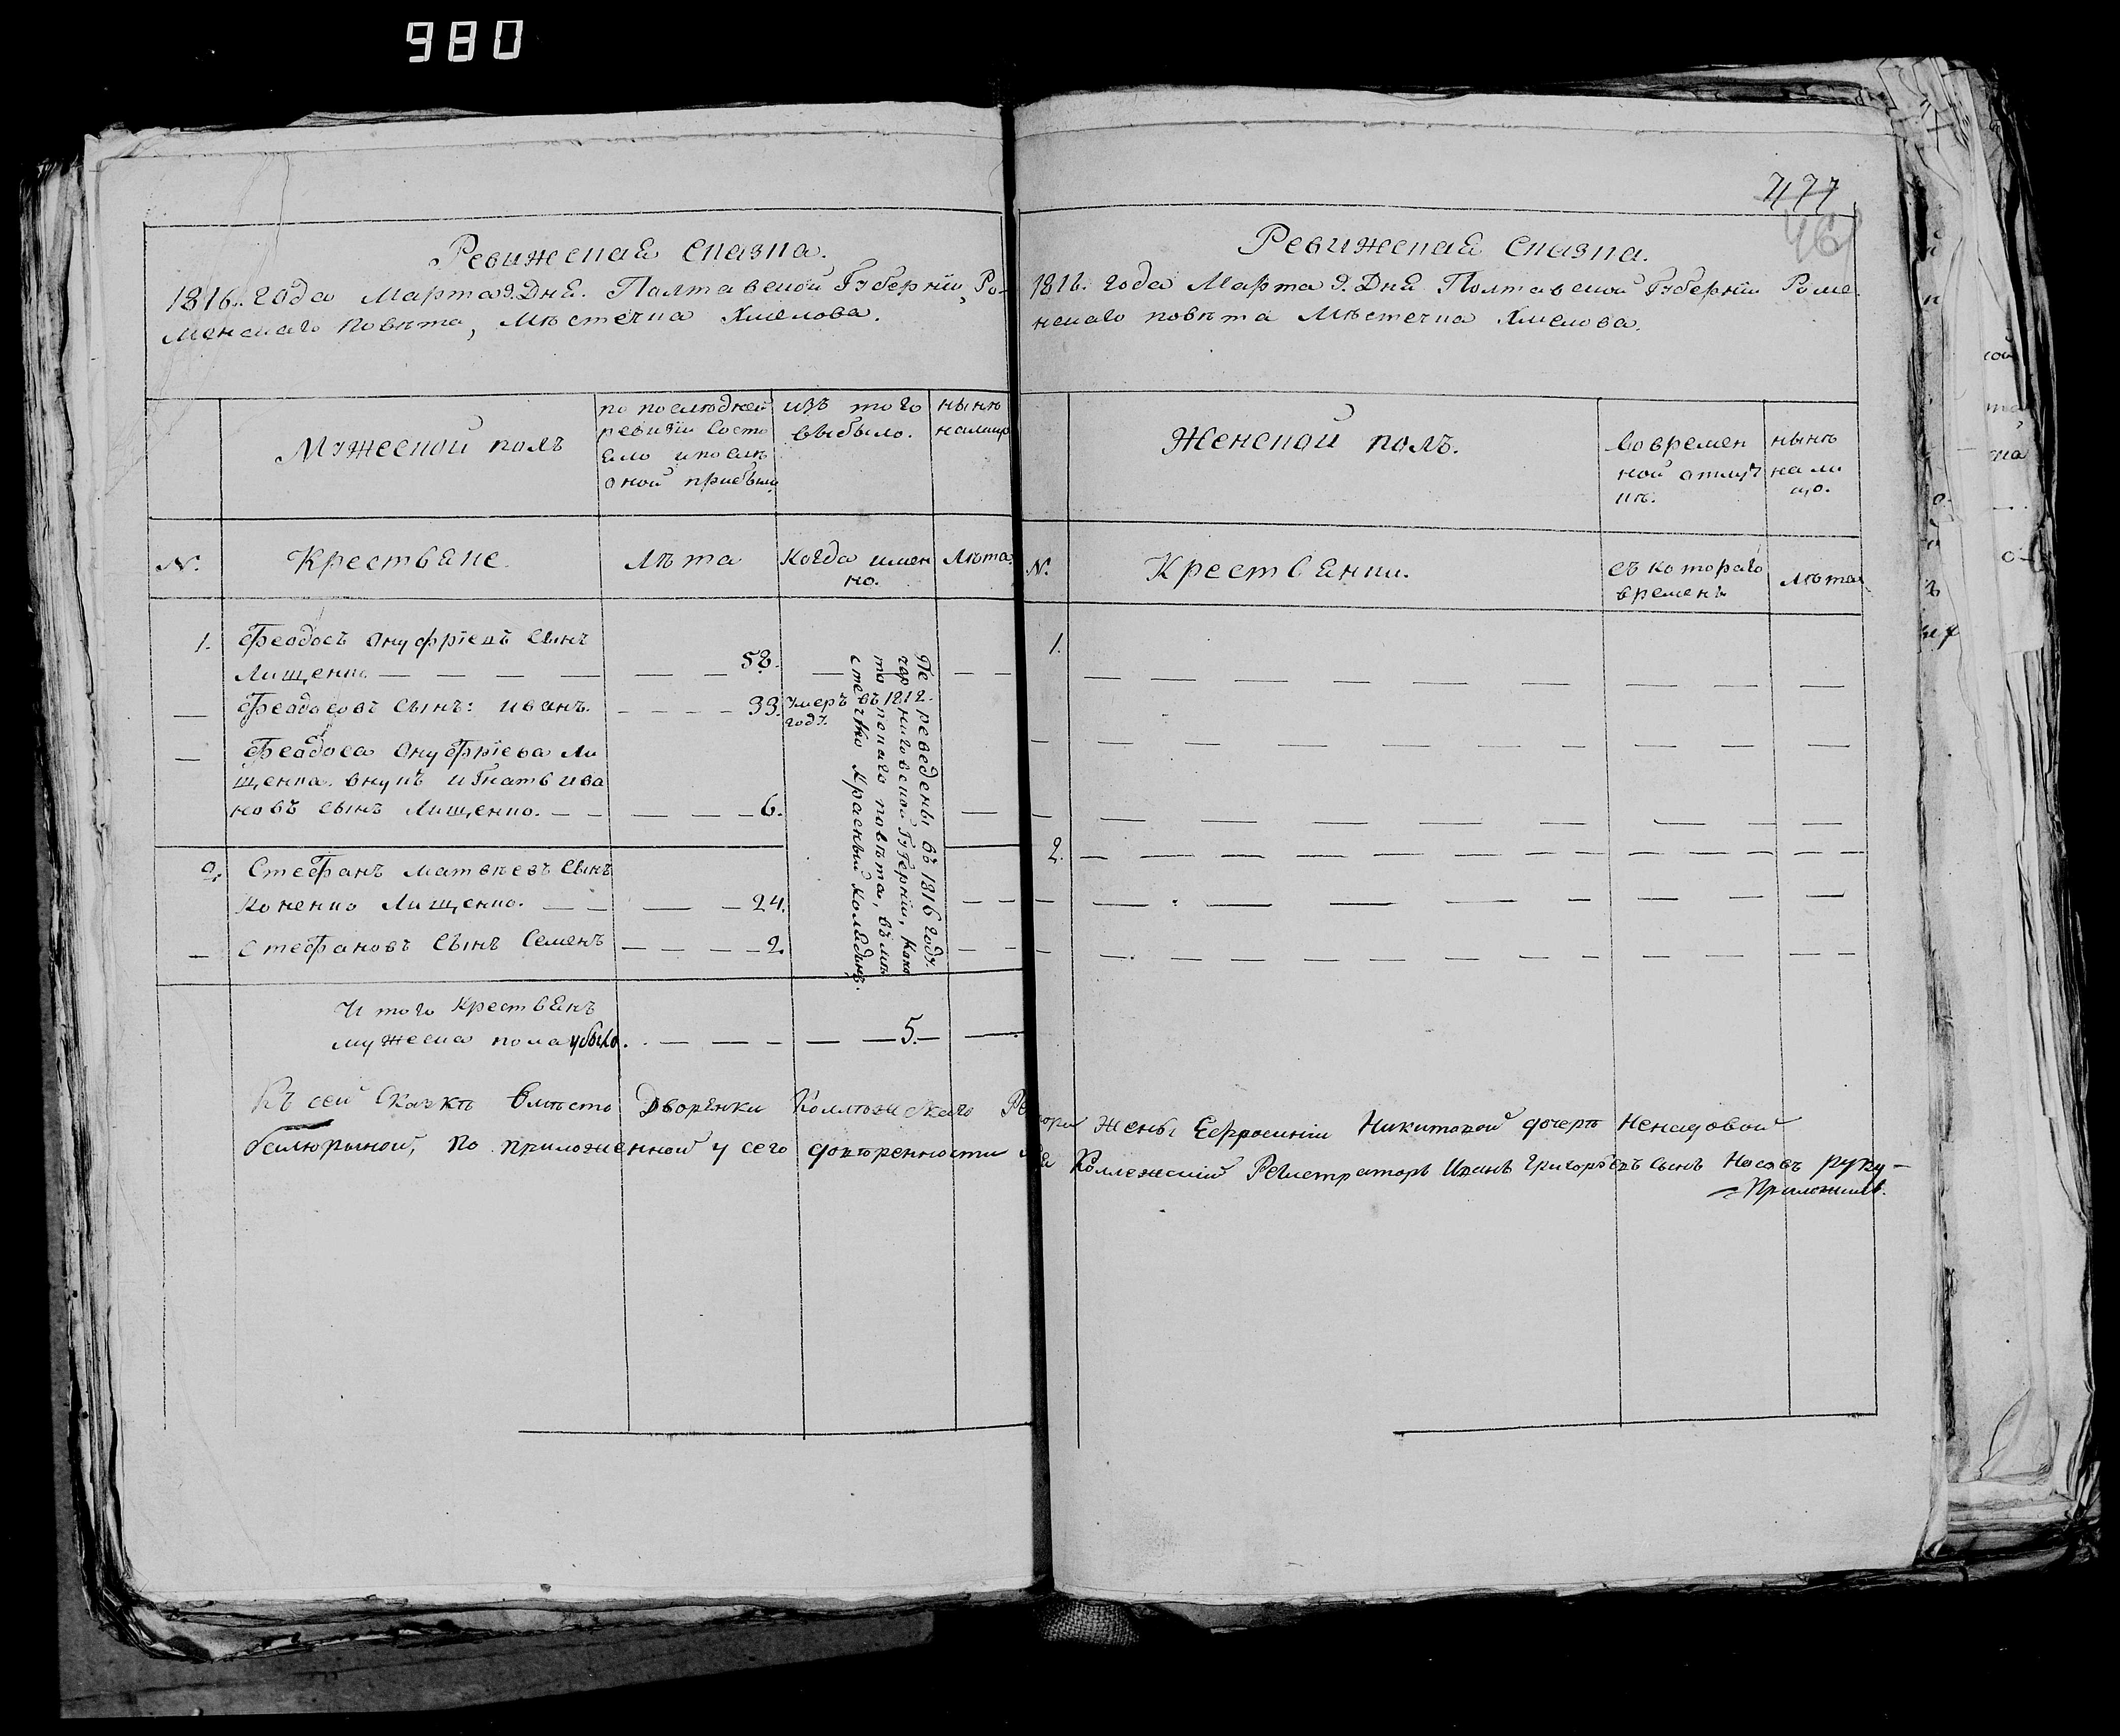 980
477
46
Ревижская сказка.
1816. года Марта 9. Дня. Полтавской Губернїи, Ро-
менскаго повѣта, Мѣстечка Хмелова.
Мужеской полъ
по послѣдней
ревизїи состо
яло и послѣ
оной прибыло
изъ того
выбыло.
нынѣ
налицо
N.
Крестьяне.
Лѣта
Когда имен
но.
Лѣта.
1. Феодосъ Онуфрїевъ сынъ
Лищенко — — — — — — 58. — — — —
— Феодосовъ сынъ: иванъ. — — — — 33. Умеръ въ 1812.
году.
— Феодоса Онуфрїева Ли
щенка. внукъ игнатъ ива
новъ сынъ Лищенко. — — — — — 6. —
2. Стефанъ матвѣевъ сынъ
Коненко Лищенко. — — — — 24. — —
— Стефановъ сынъ Семенъ — — — — 2. — —
Переведены въ 1816 году.
черниговской Губернїи, Коно
топскаго повѣта, въ мѣ
стечко Красный Колядинъ.
И того Крестьянъ
мужеска пола убыло. — — — — — 5. — —
Ревижская Сказка.
1816. года Марта 9. Дня Полтавской Губернїи Роме
нскаго повѣта Мѣстечка Хмелова.
Женской полъ.
во времен
ной отлуч
кѣ.
нынѣ
на ли
цо.
N.
Крестьянки.
съ котораго
времени
Лѣта
1.
2.
Къ сей Сказкѣ вмѣсто Дворянки Коллежскаго Ре тора Жены Ефросинїи Никитовой дочери Ненадовой
по приложенной у сего довѣренности Коллежскїй Регистраторъ Иванъ Григорьевъ сынъ Носовъ руку —
Приложилъ.